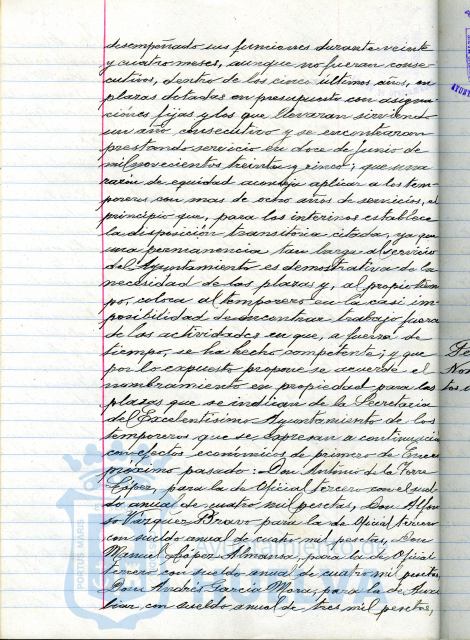 desempeñado sus funciones durante veinte
y cuatro meses, aunque no fueran conse-
cutivos, dentro de los cinco últimos años, en
plazas dotadas en presupuesto con asigna-
ciones fijas y los que llevaran sirviendo
un año consecutivo y se encontraran
prestando servicio en doce de Junio de
mil novecientos treinta y cinco; que una
razón de equidad aconseja aplicar a los tem-
poreros con mas de ocho años de servicios, el
principio que, para los interinos establece
la disposición transitoria citada, ya que
una permanencia tan larga al servicio
del Ayuntamiento es demostrativa de la
necesidad de las plazas y, al propio tiem-
po, coloca al temporero en la casi im-
posibilidad de encontrar trabajo fuera
de las actividades en que, a fuerza de
tiempo, se ha hecho competente; y que
por lo expuesto propone se acuerde el
nombramiento en propiedad para las
plazas que se indican de la Secretaria
del Excelentísimo Ayuntamiento de los
temporeros que se expresan a continuación
con efectos económicos de primero de Enero
próximo pasado: Don Antonio de la Torre
López, para la de Oficial tercero con el suel-
do anual de cuatro mil pesetas, Don Alfon-
so Vázquez Bravo para la de Oficial tercero
con sueldo anual de cuatro mil pesetas, Don
Manuel López Almansa, para la de Oficial
tercero con sueldo anual de cuatro mil pesetas
Don Andrés García Mora, para la de Auxi-
liar, con sueldo anual de tres mil pesetas,
PORTUS MARIS